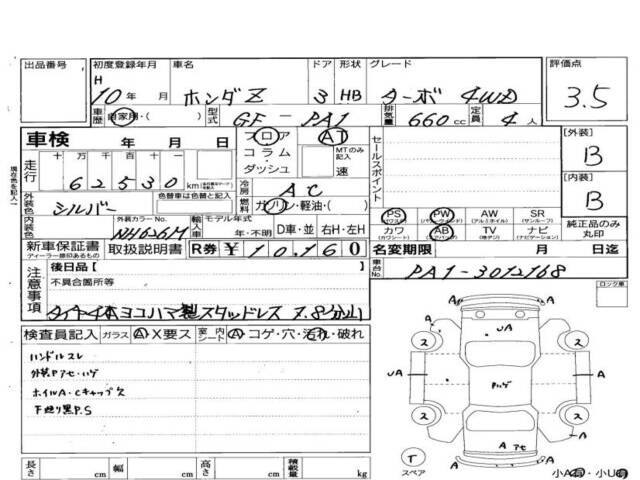 出品番号 初度登録年月 車名 ドア 形状 グレード 評価点
H
10年 月 ホンダZ 3 HB ターボ 4WD 3.5
車歴 自家用・( ) 型式 GF-PA1 排気量 660cc 定員 4人
車検 年 月 日 フロア AT セールスポイント [外装]
コラム・ MTのみ記入 B
ダッシュ 速
走行 十 万 千 百 十 一
62530 km 冷房 AC [内装]
現在色を記入 外装色 シルバー 色替車は色替と記入 燃料 ガソリン・軽油・( ) B
PS PW AW SR
(パワステ) (パワーウインド) (アルミホイル) (サンルーフ)
内装色 外装カラーNo. NH626M 輸入車 モデル年式 年・不明 D車・並 右H・左H カワ AB TV ナビ 純正品のみ丸印
(カワシート) (エアバッグ) (地デジ) (ナビゲーション)
新車保証書 取扱説明書 R券 ¥10,160 名変期限 月 日迄
ディーラー捺印あるもの
注意事項 後日品[ ] 車台No. PA1-3012168
不具合箇所等 ロック車
タイヤ4本ヨコハマ製スタッドレス 7.8分山
検査員記入 ガラス A・X要ス 室内シート A・コゲ・穴・汚れ・破れ
ハンドルスレ
外装Pアセ・ハゲ
ホイルA・Cキャップス
下廻り黒P.S
A A
UA
2 2
UA Pハゲ A
2 2
A アセ
A
T
スペア 小A有・小U有
長さ cm 幅 cm 高さ cm 積載量 kg